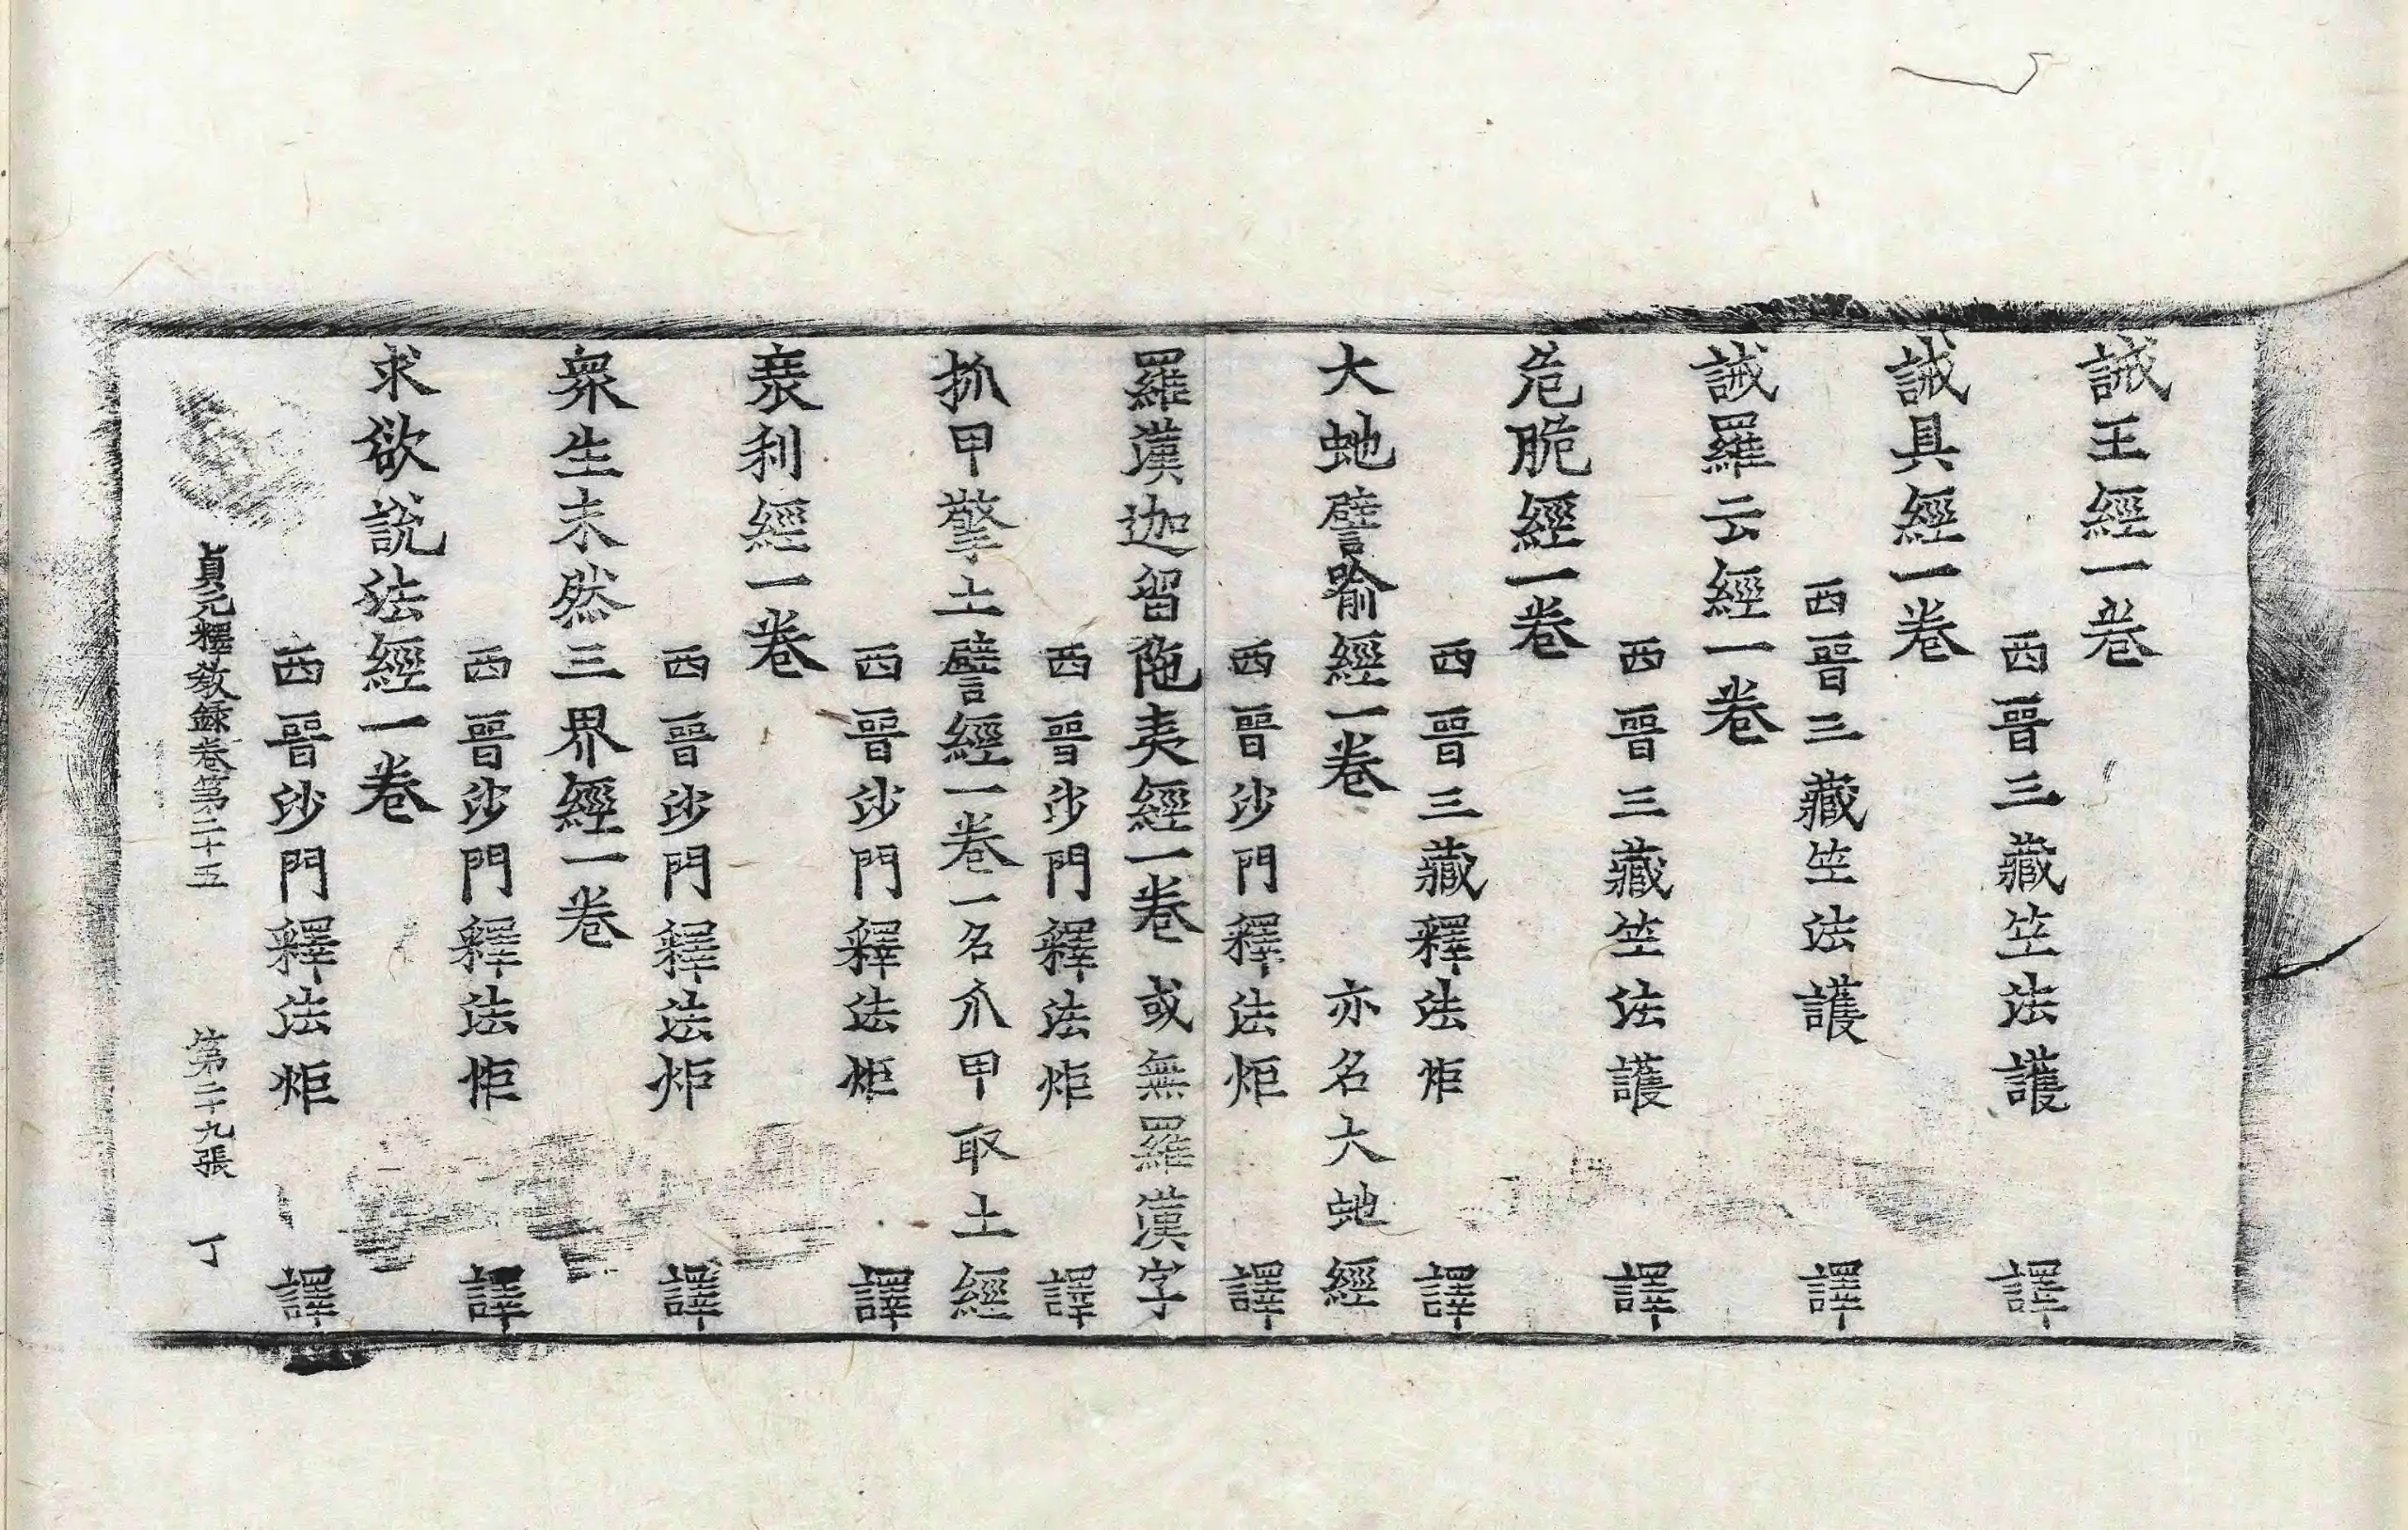 誡王經一卷
西晉三藏竺法護　譯
誡具經一卷
西晉三藏竺法護　譯
誡羅云經一卷
西晉三藏竺法護　譯
危脆經一卷
西晉三藏釋法炬　譯
大虵譬喻經一卷　亦名大虵經
西晉沙門釋法炬　譯
羅漢迦留陁夷經一卷　或無羅漢字
西晉沙門釋法炬　譯
抓甲擎土譬經一卷一名爪甲取土經
西晉沙門釋法炬　譯
衰利經一卷
西晉沙門釋法炬　譯
衆生未然三界經一卷
西晉沙門釋法炬　譯
求欲說法經一卷
西晉沙門釋法炬　譯
貞元釋敎錄卷第二十五　第二十九張　丁